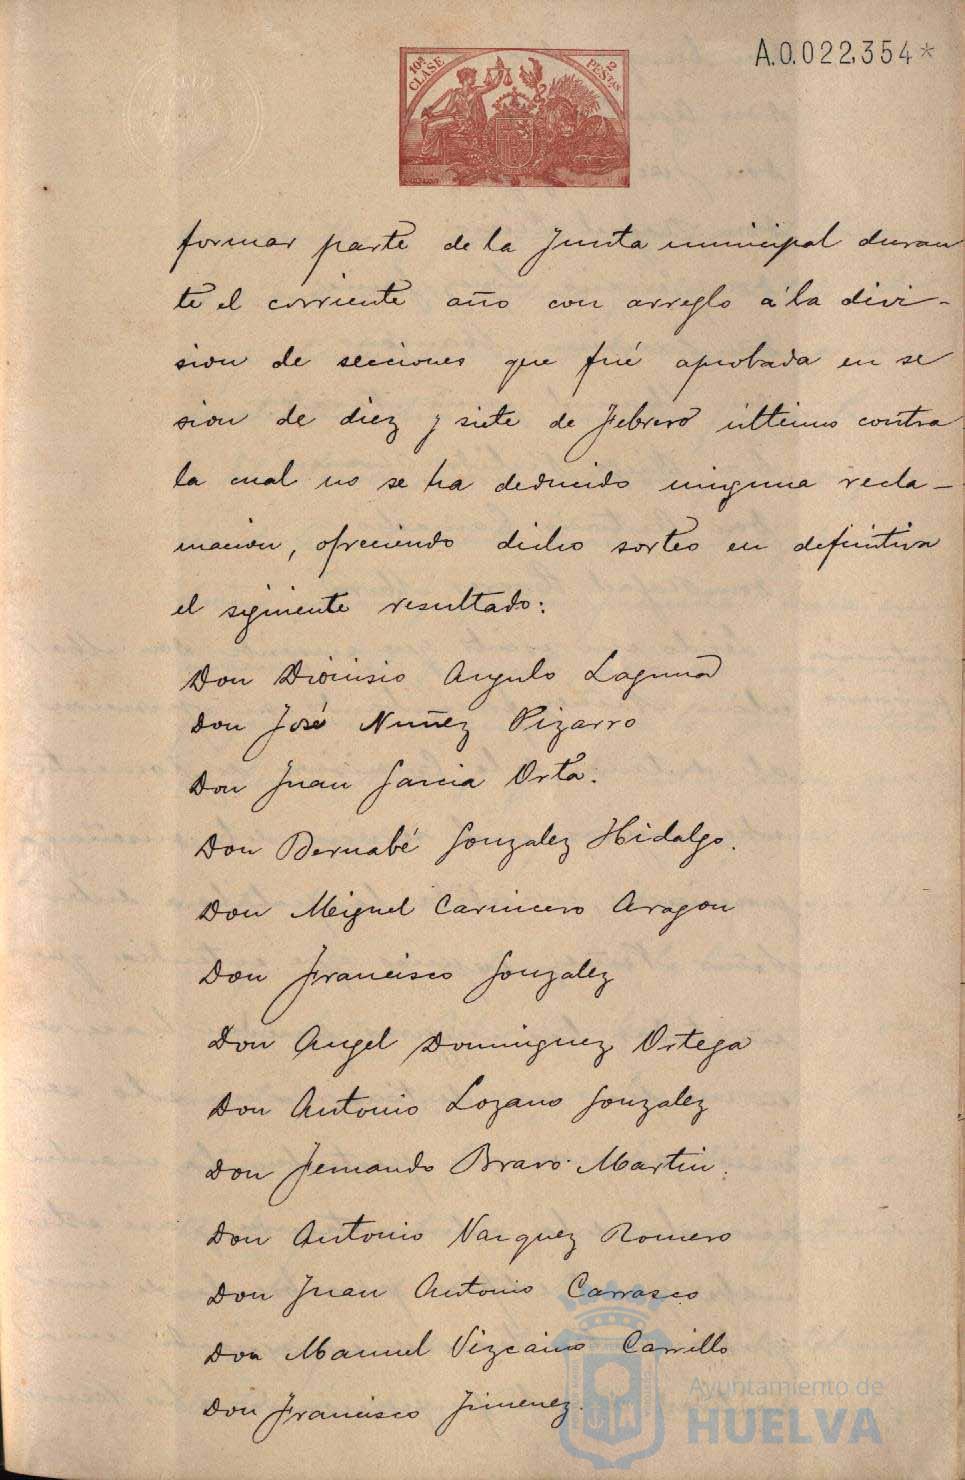 A.0.022,354*
10ª CLASE
2 PESTAS
formar parte de la Junta municipal duran
te el corriente año con arreglo á la divi-
sion de secciones que fué aprobada en se
sion de diez y siete de Febrero ultimo contra
la cual no se ha deducido ninguna recla-
macion, ofreciendo dicho sorteo en definitiva
el siguiente resultado:
Don Dionisio Angulo Laguna
Don José Nuñez Pizarro
Don Juan Garcia Orta.
Don Bernabé Gonzalez Hidalgo.
Don Miguel Carnicero Aragon
Don Francisco Gonzalez
Don Angel Dominguez Ortega
Don Antonio Lozano Gonzalez
Don Fernando Bravo Martin.
Don Antonio Vazquez Romero
Don Juan Antonio Carrasco
Don Manuel Vizcaino Carrillo
Don Francisco Jimenez.
Ayuntamiento de
HUELVA